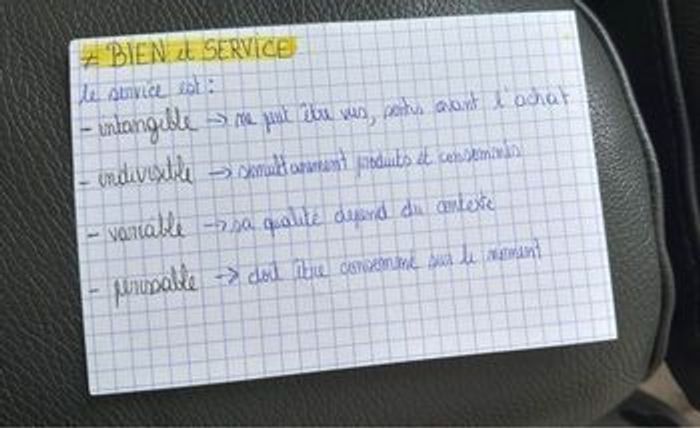 ≠ BIEN et SERVICE
le service est :
- intangible -> ne peut être vus, sentis avant l'achat
- indivisible -> simultanément produits et consommés
- variable -> sa qualité dépend du contexte
- périssable -> doit être consommé sur le moment